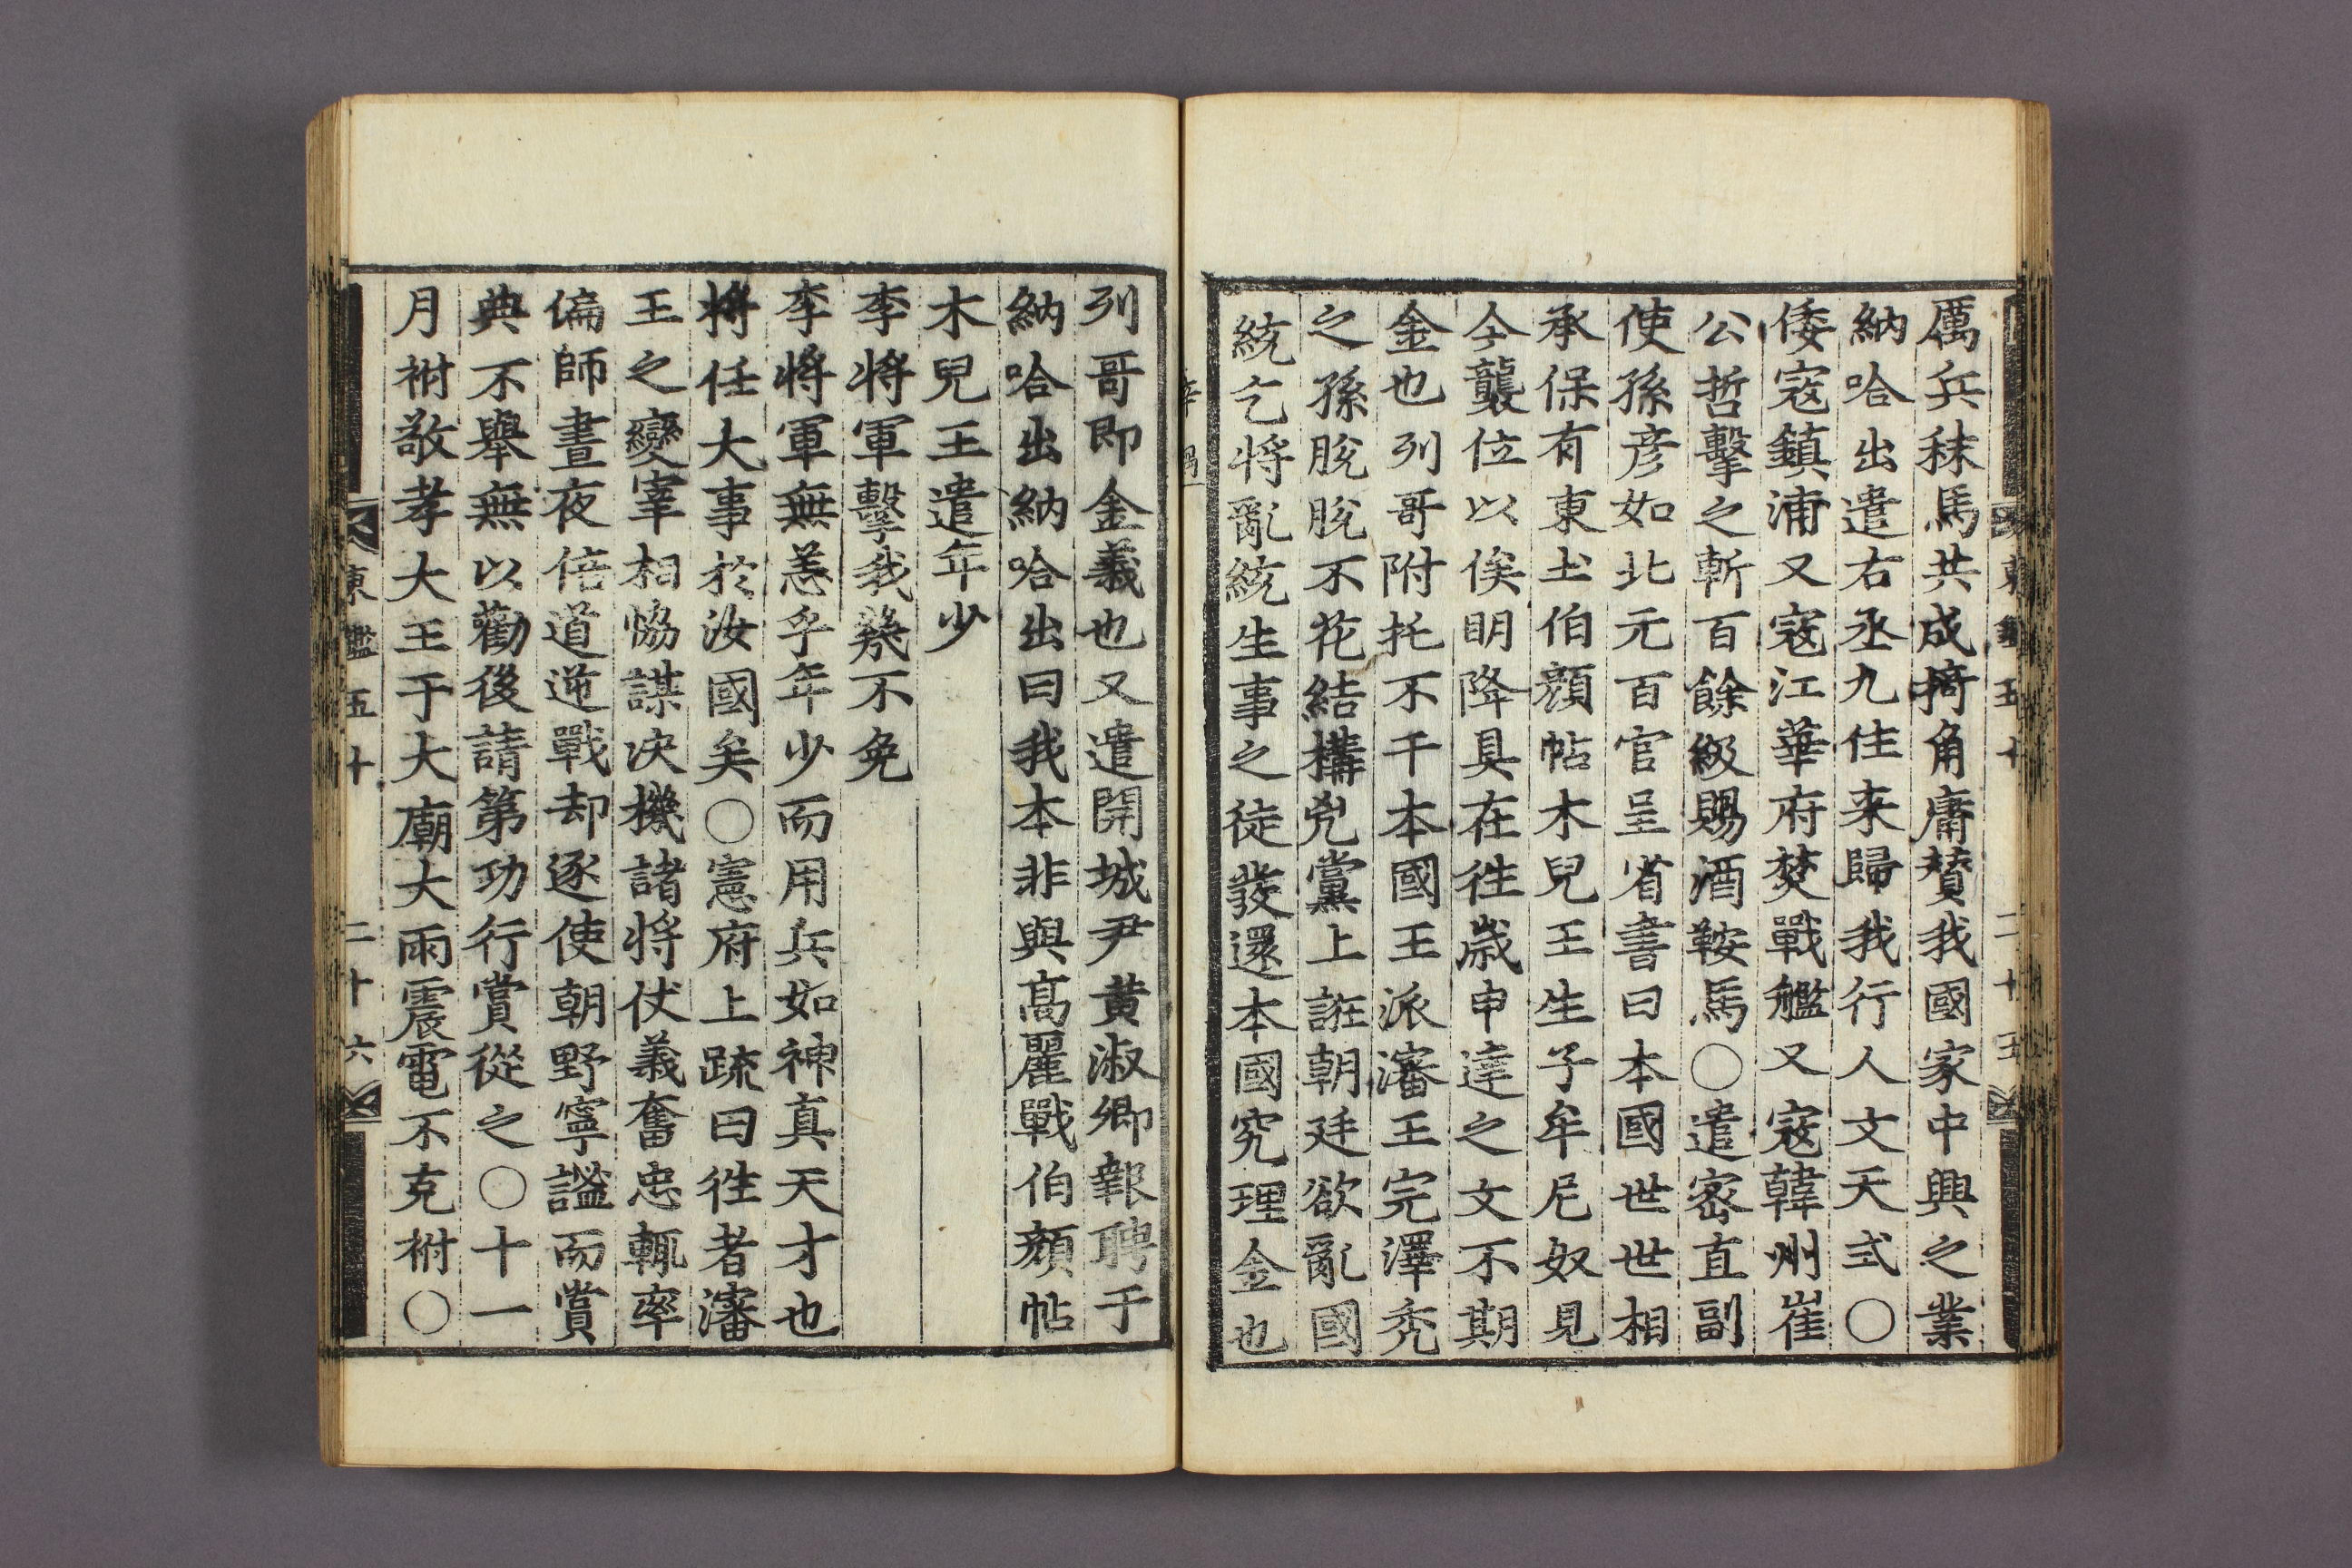 厲兵秣馬共成掎角庸贊我國家中興之業
納哈出遣右丞九住来歸我行人文天式〇
倭寇鎮浦又寇江華府焚戰艦又寇韓州崔
公哲擊之斬百餘級賜酒鞍馬〇遣密直副
使孫彦如北元百官呈省書曰本國世世相
承保有東土伯顔帖木兒王生子牟尼奴見
今襲位以俟明降具在徃歳申達之文不期
金也列哥附托不干本國王派瀋王完澤禿
之孫脫脫不花結構兇黨上誑朝廷欲亂國
統乞將亂統生事之徒發還本國究理金也
列哥即金義也又遣開城尹黄淑卿報聘于
納哈出納哈出曰我本非與髙麗戰伯顔帖
木兒王遣年少
李將軍擊我㡬不免
李將軍無恙乎年少而用兵如神真天才也
將任大事於汝國矣〇憲府上疏曰徃者瀋
王之變宰相恊謀决機諸將仗義奮忠輒率
偏師晝夜倍道逆戰却逐使朝野寧謐而賞
典不舉無以勸後請第功行賞從之〇十一
月祔敬孝大王于大廟大雨震電不克祔〇
東鑑五十 二十六